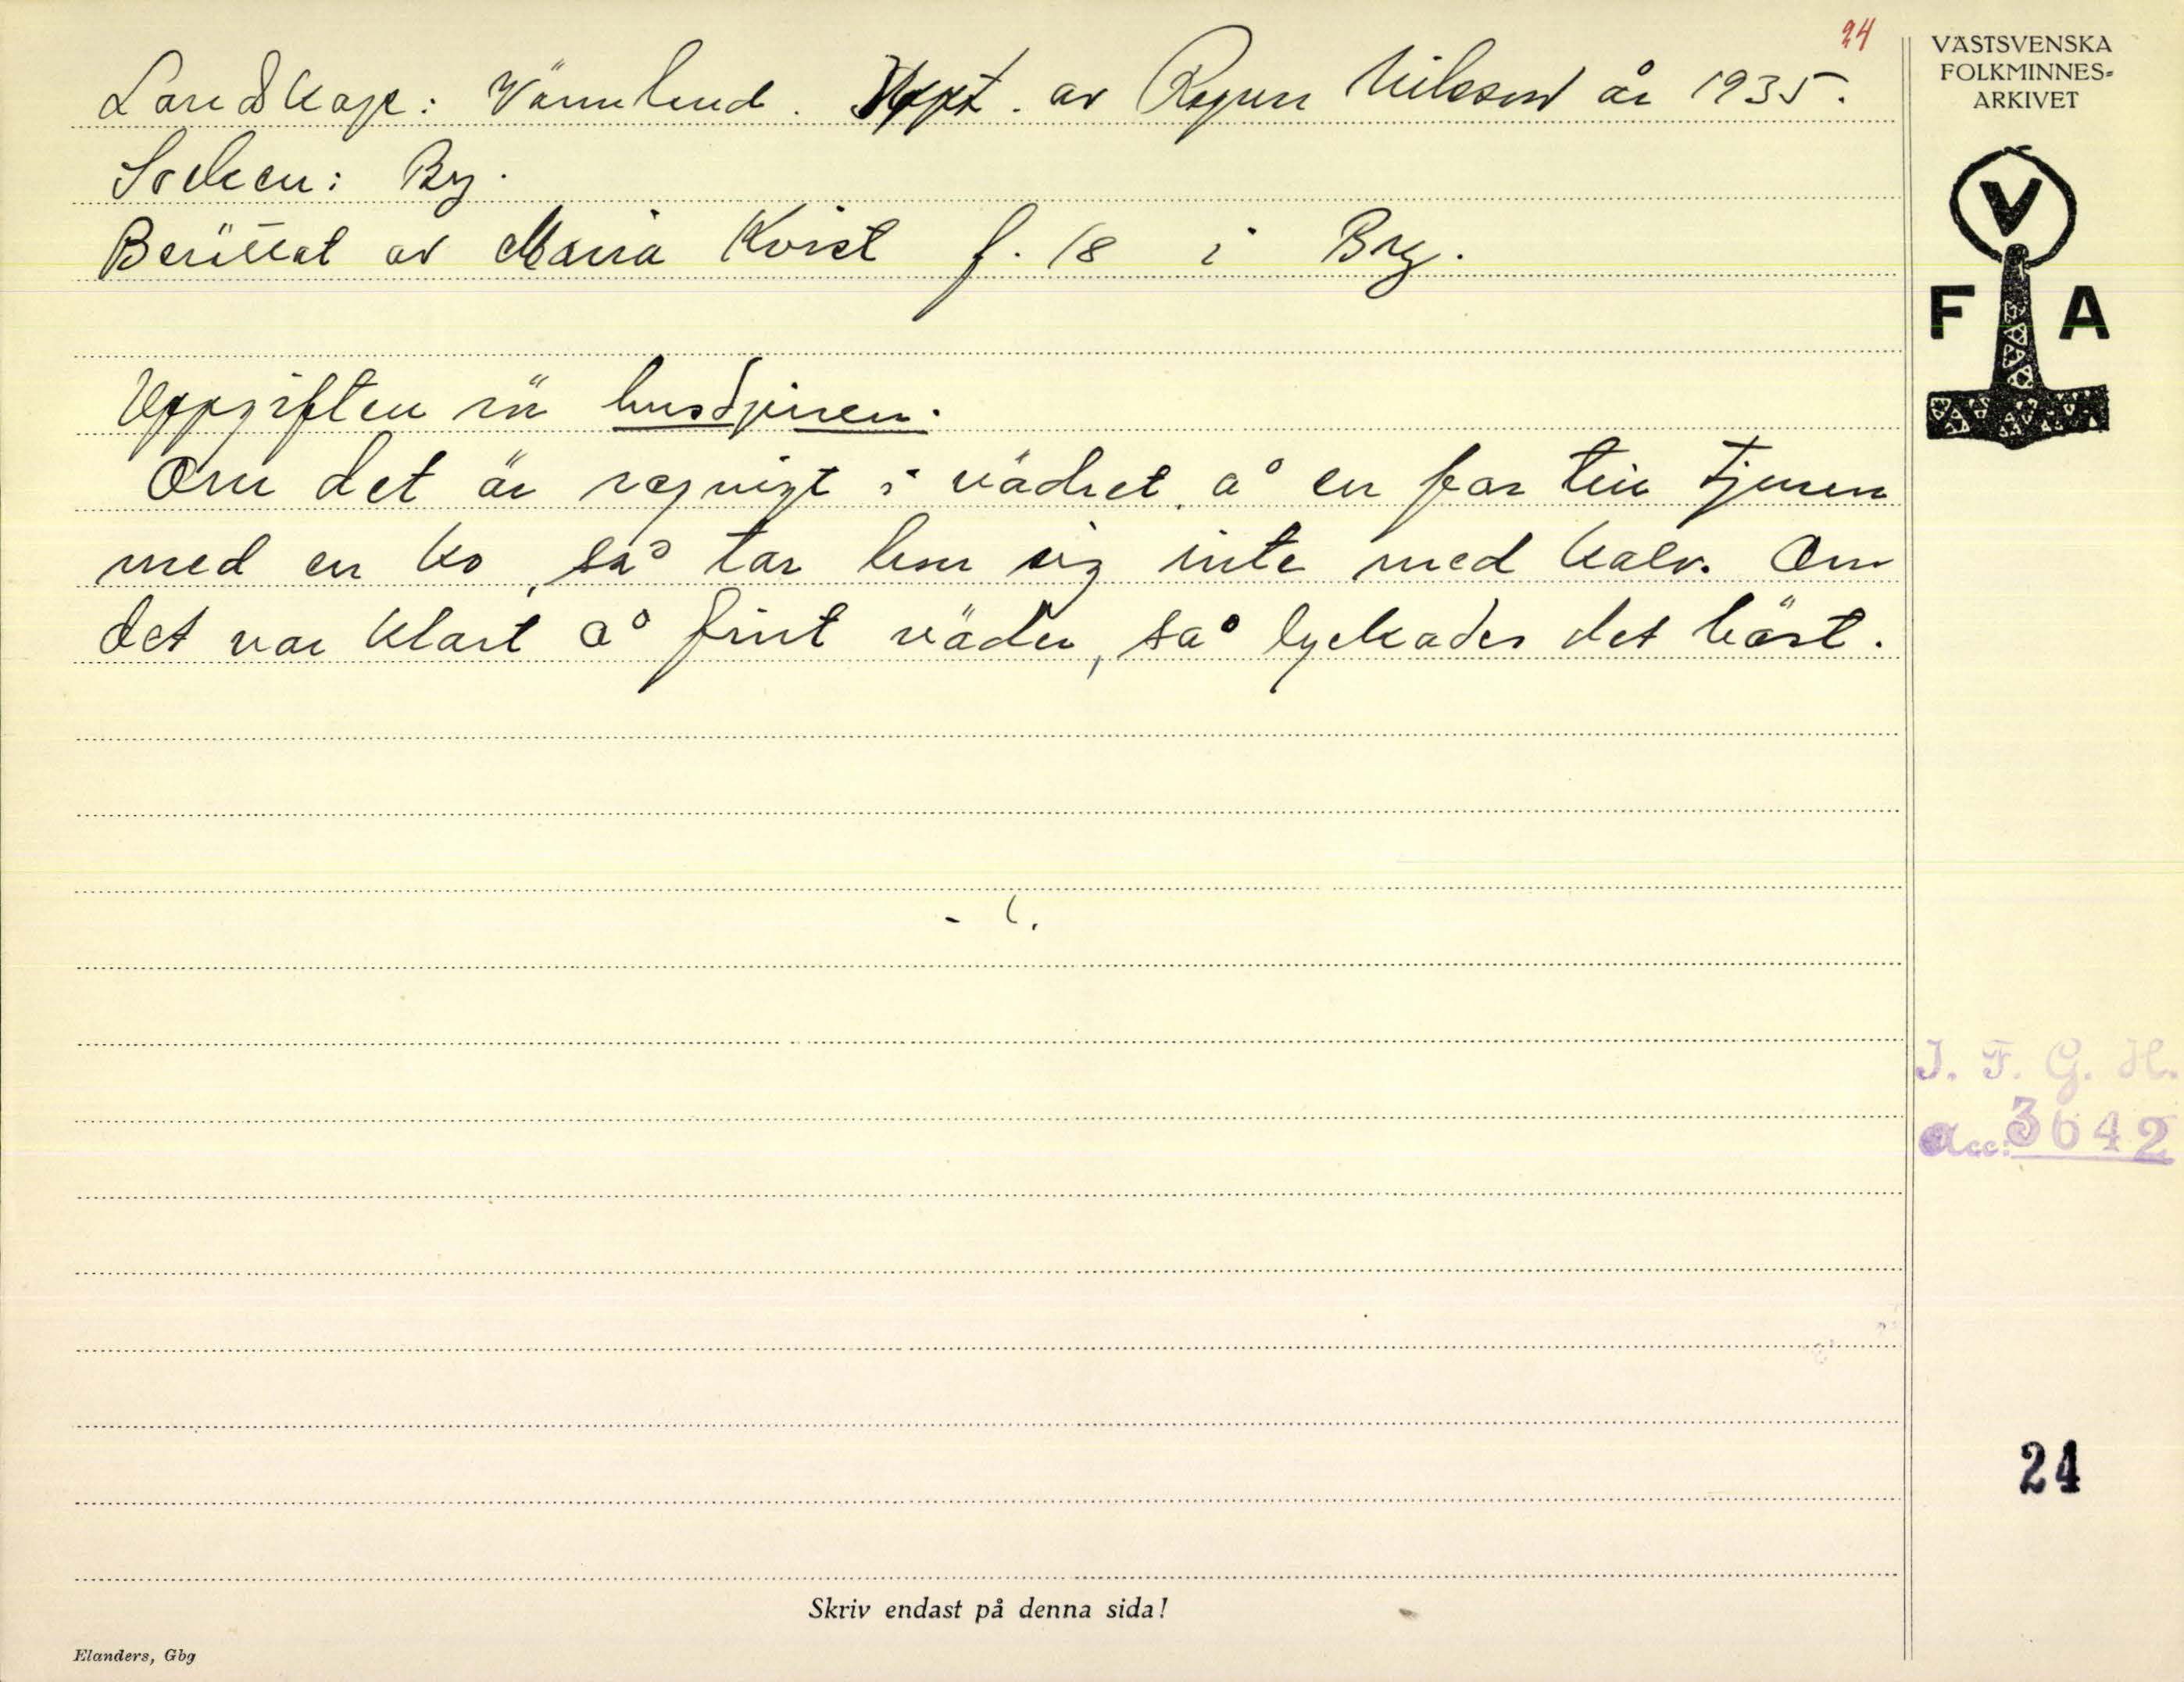 24
Landskap: Värmland. Uppt. av Ragnar Nilsson år 1935.
Socken: By.
Berättat av Maria Kvist f. 18 i By.
Uppgiften rör husdjuren.
Om det är regnigt i vädret, å en far till tjuren
med en ko, så tar hon sig inte med kalv. Om
det var klart å fint väder, så lyckades det bäst.
VÄSTSVENSKA
FOLKMINNES-
ARKIVET
V
F A
I. F. G. H.
Acc: 3642
24
Skriv endast på denna sida!
Elanders, Gbg